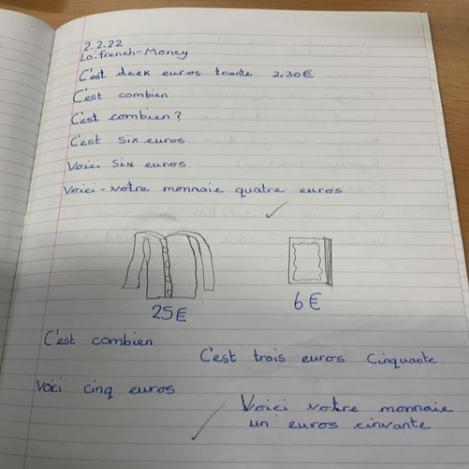 2.2.22
Lo. French - Money
C'est deux euros trente 2,30€
C'est combien
C'est combien?
C'est six euros
Voici six euros
Voici - votre monnaie quatre euros
25€
6€
C'est combien
C'est trois euros cinquante
Voici cinq euros
Voici votre monnaie
un euros cinvante